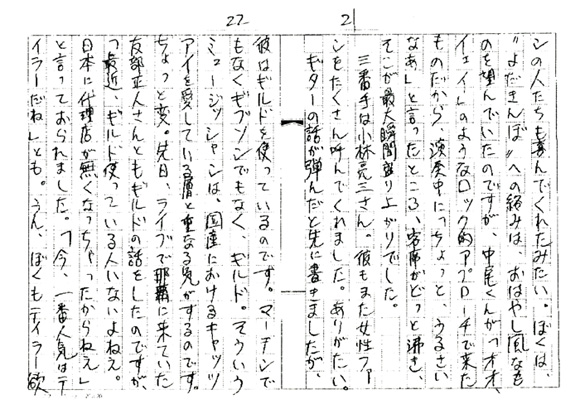 21
ンの人たちも喜んでくれたみたい。ぼくは、
"よだきんぼ"への絡みは、おはやし風なも
のを望んでいたのですが、中尾くんが「オオ、
イェイ」のようなロック的アプローチで来た
ものだから、演奏中に「ちょっと、うるさい
なあ」と言ったところ、客席がどっと沸き、
そこが最大瞬間盛り上がりでした。
三番手は小林亮三さん。彼もまた女性ファ
ンをたくさん呼んでくれました。ありがたい。
ギターの話が弾んだと先に書きましたが、
22
彼はギルドを使っているのです。マーチンで
もなくギブソンでもなく、ギルド。そういう
ミュージシャンは、国産におけるキャッツ
アイを愛している層と重なる気がするのです。
ちょっと変。先日、ライブで那覇に来ていた
友部正人さんともギルドの話をしたのですが、
「最近、ギルド使っている人いないよねえ。
日本に代理店が無くなっちゃったからねえ」
と言っておられました。「今、一番人気はテ
イラーだね」とも。うん、ぼくもテイラー欲